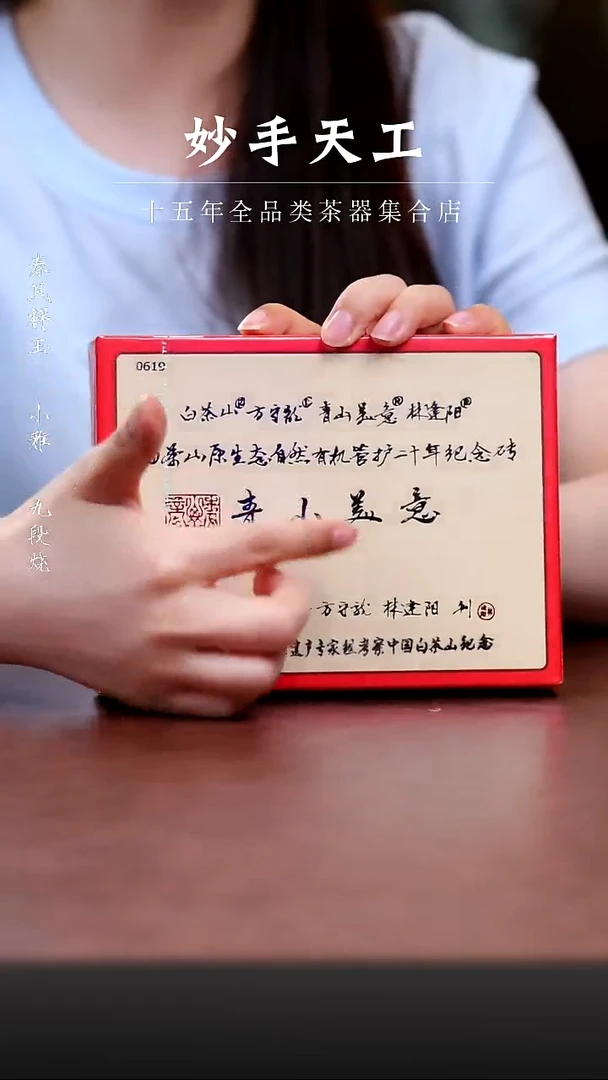 妙手天工
十五年全品类茶器集合店
九段烧
0619
白茶山® 方守龙® 青山美意® 林建阳®
茶山原生态自然有机管护二十年纪念砖
青山美意
方守龙 林建阳 制
遗产专家组考察中国白茶山纪念